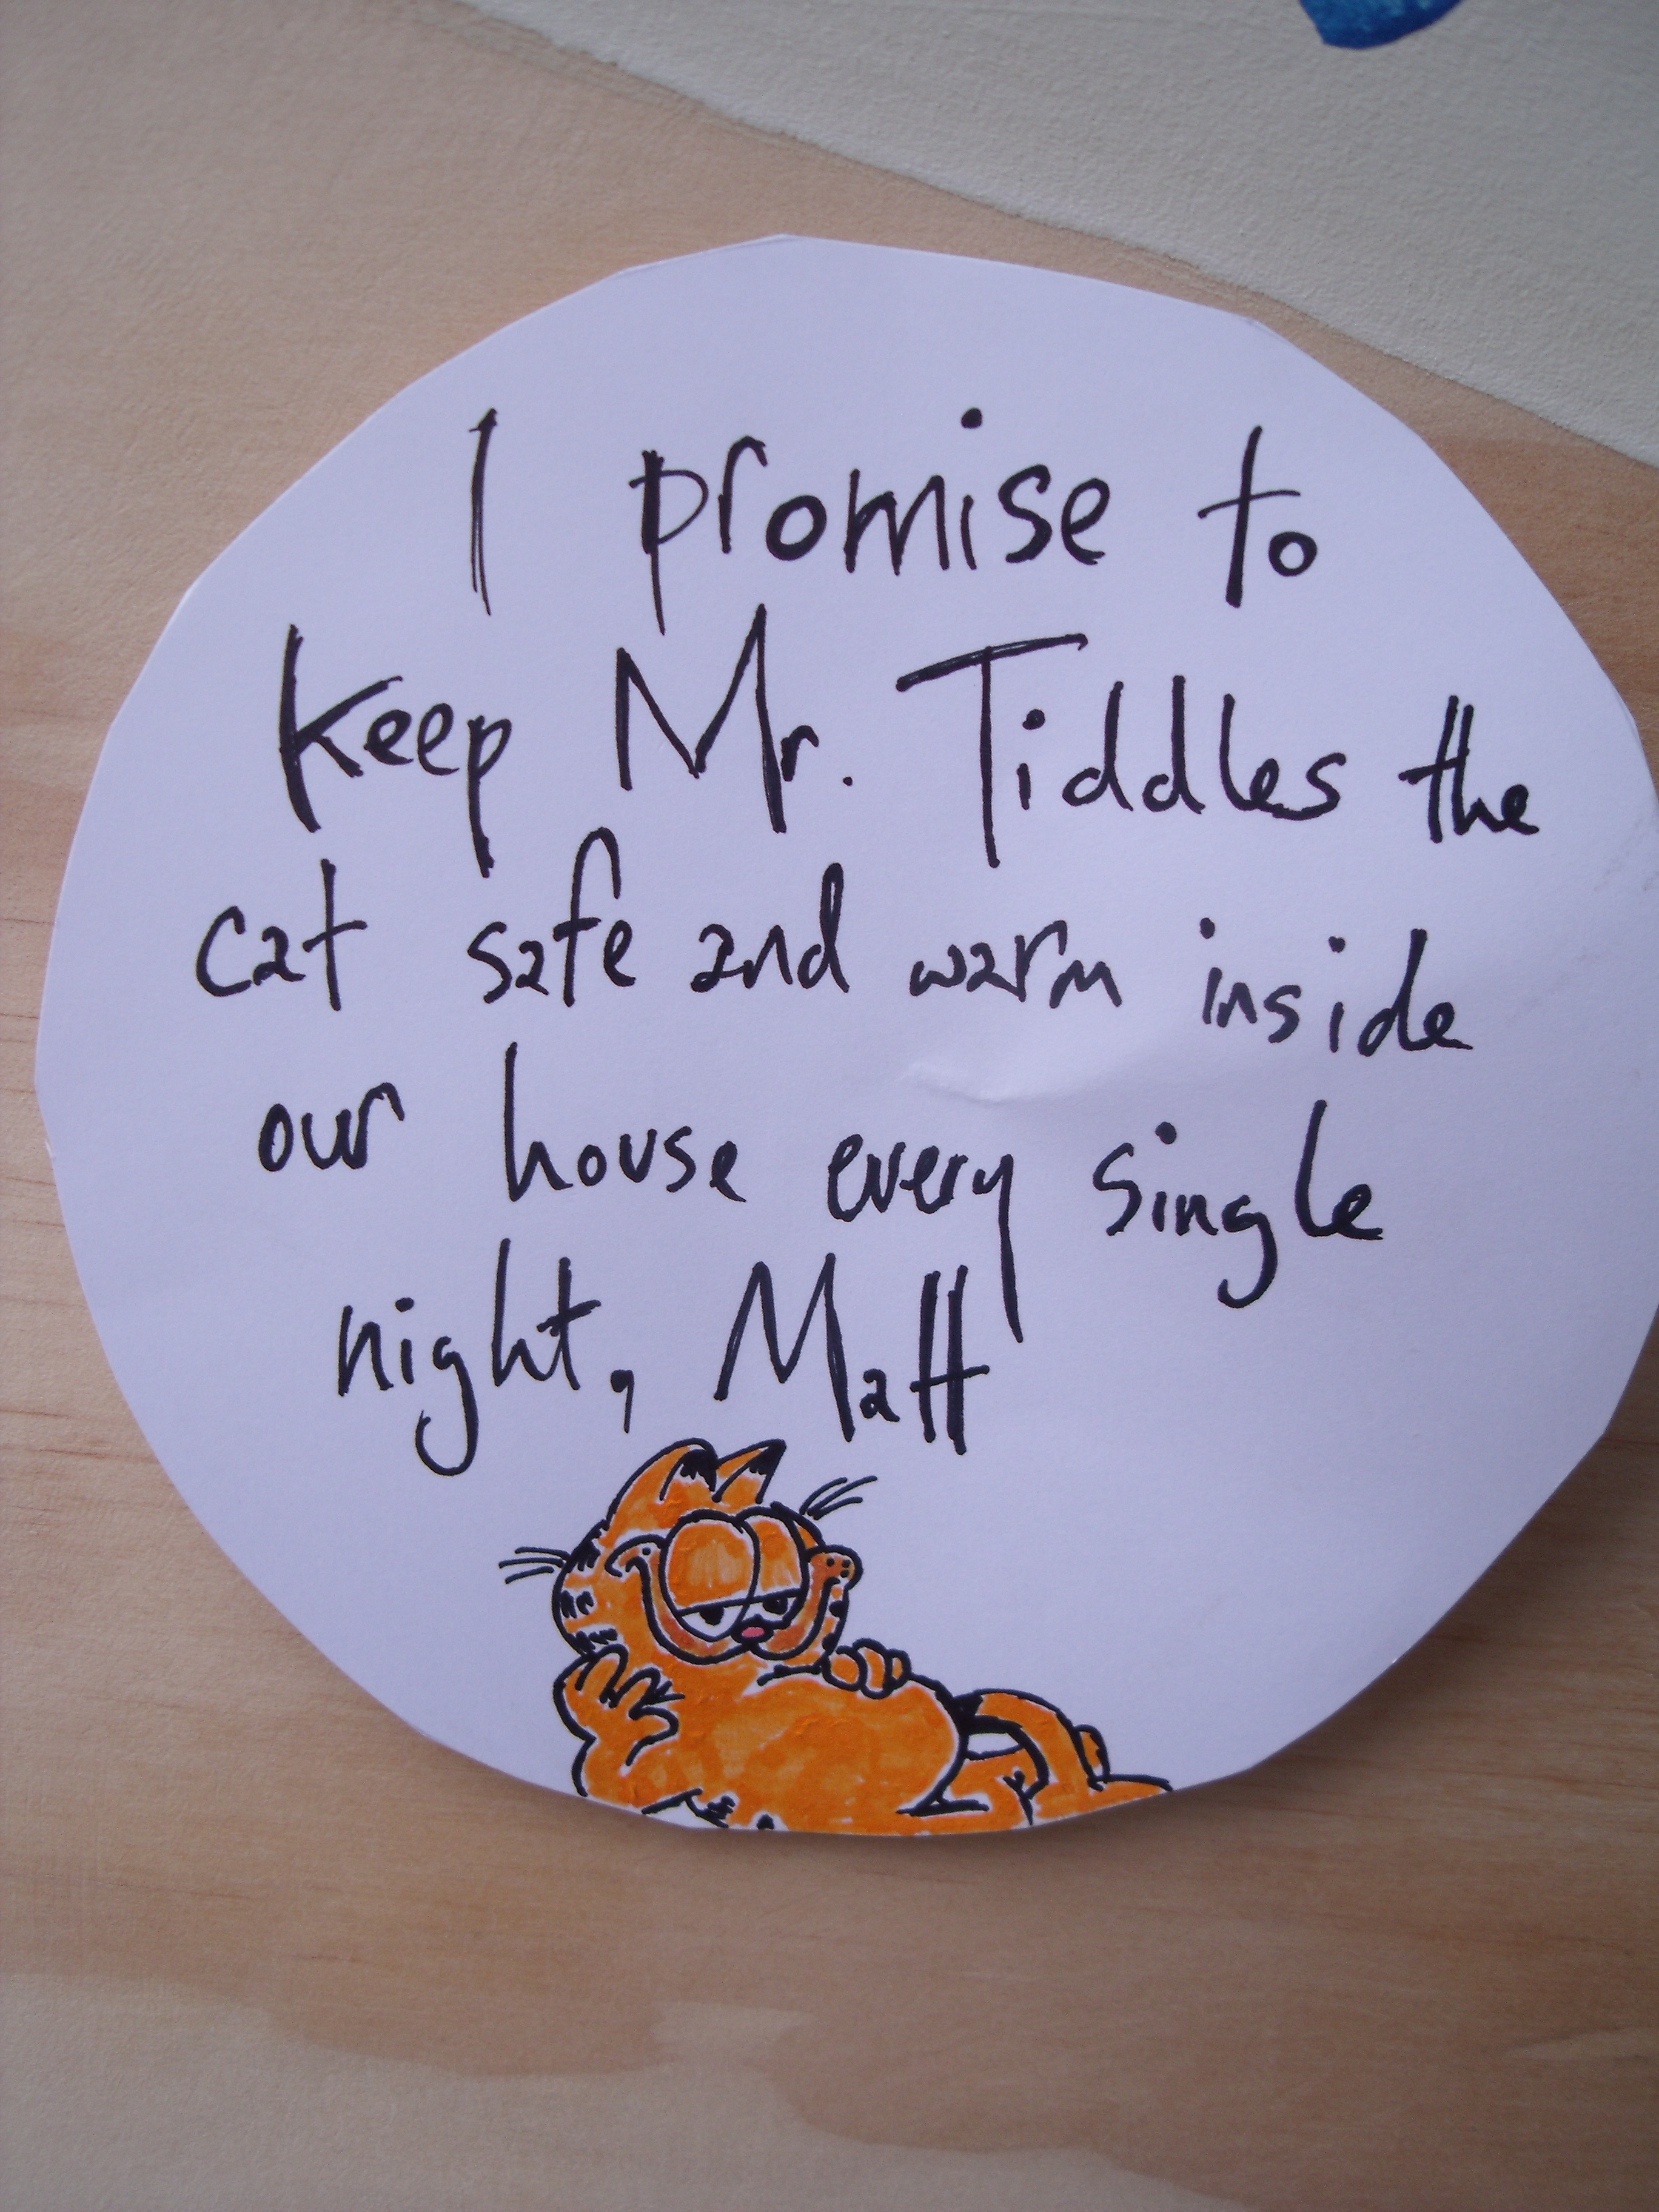 I promise to
keep Mr. Tiddles the
cat safe and warm inside
our house every single
night, Matt